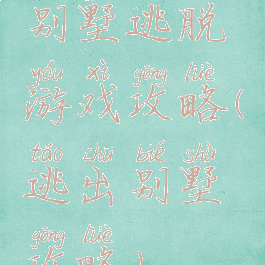 别墅逃脱
yóu xì gōng lüè
游戏攻略(
táo chū bié shù
逃出别墅
gōng lüè
攻略)